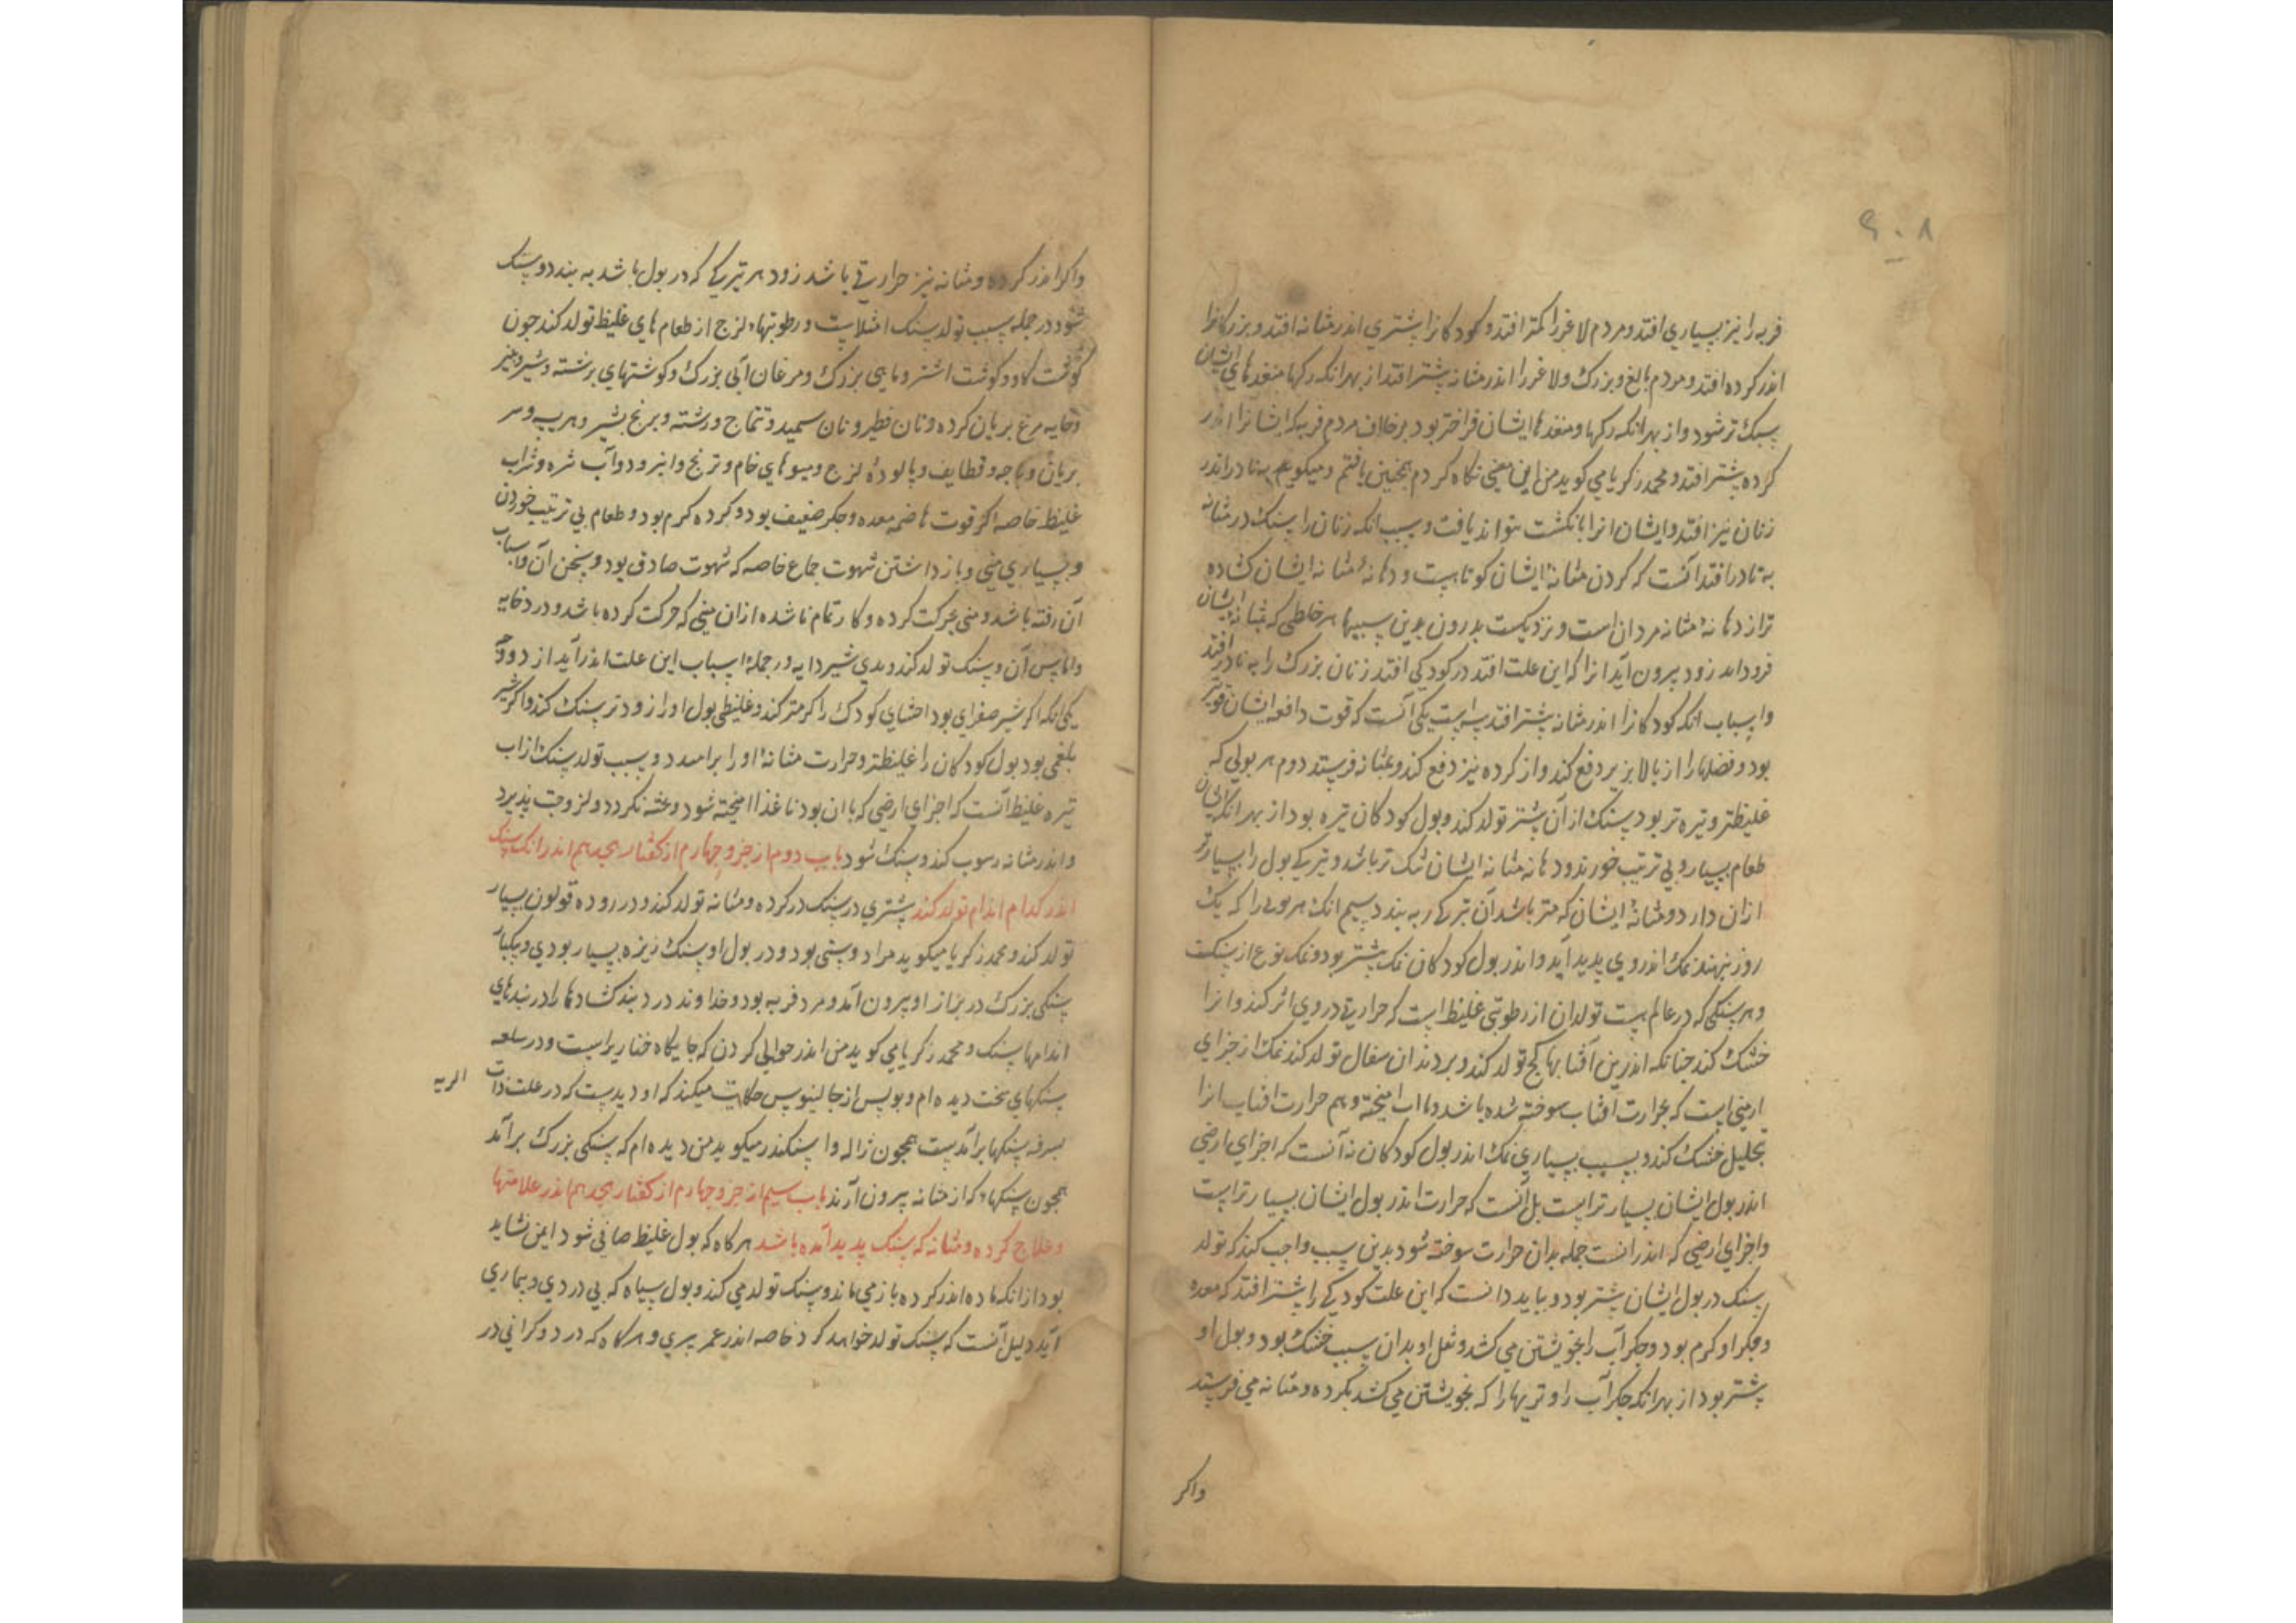 ۶۰۸
فربه را نیز بسیاری افتد و مردم لاغر را کمتر افتد و کودکانرا بیشتری اندر مثانه افتد و بزرکانرا
اندر کرده افتد و مردم بالغ و بزرک و لاغر را اندر مثانه بیشتر افتد از بهر انکه رکها منفذهای ایشان
سبک تر شود و از بهر انکه رکها و منفذها ایشان فراختر بود برخلاف مردم فربه که ایشانرا اندر
کرده بیشتر افتد و محمد زکریا می کوید من این معنی نکاه کردم همچنین یافتم و میکویم به نادر اندر
زنان نیز افتد و ایشان انرا بانکشت بتواند یافت و سبب انکه زنان را سنک در مثانه
به نادر افتد آنست که کردن مثانهٔ ایشان کوتاهست و دهانهٔ مثانه ایشان کشاده
تر از دهانهٔ مثانه مردان است و نزدیکست به رون بدین سببها هر خلطی که بمثانه ایشان
فرود اید زود بیرون آید انرا که این علت افتد در کودکی افتد زنان بزرک را به نادر افتد
و اسباب انکه کودکانرا اندر مثانه بیشتر افتد سه است یکی آنست که قوت دافعه ایشان قوی تر
بود و فضلها را از بالا بزیر دفع کند و از کرده نیز دفع کند و بمثانه فرستد دوم هر بولی که
غلیظتر و تیره تر بود سنک از آن بیشتر تولد کند و بول کودکان تیره بود از بهر انکه ایشان
طعام بسیار و بی ترتیب خورند و دهانه مثانه ایشان تنک تر باشد و تیرکی بول را بسیارتر
ازان دارد و مثانهٔ ایشان کرمتر باشد آن تیرکی را به بندد سیم انک هر بولی را که یک
روز بنهند نمک اندر وی پدید آید و اندر بول کودکان نمک بیشتر بود و نمک نوع از سنکست
و هر سنکی که در عالم است تولد ان از رطوبتی غلیظ است که حرارتی در وی اثر کند و انرا
خشک کند چنانکه اندرین آفتابها کج تولد کند و بردندان سفال تولد کند نمک از جزای
ارضی است که بحرارت افتاب سوخته شده باشد و با اب امیخته و هم حرارت افتاب انرا
بتحلیل خشک کند و بسبب بسیاری نمک اندر بول کودکان نه آنست که اجزای ارضی
اندر بول ایشان بسیار تر است بل آنست که حرارت اندر بول ایشان بسیار تر است
و اجزای ارضی که اندر انست جمله بدان حرارت سوخته شود بدین سبب واجب کند که تولد
سنک در بول ایشان بیشتر بود و بباید دانست که این علت کودکی را بیشتر افتد که معده
و جکر او کرم بود و جکر آب را بخویشتن می کشد و ثفل او بدان سبب خشک بود و بول او
بیشتر بود از بهر انکه جکر آب را و تریها را که بخویشتن می کشد بکرده و مثانه می فرستد
واکر
واکر اندر کرده و مثانه نیز حرارتی باشد زود هر تیرکی که در بول باشد به بندد و سنک
شود در جمله سبب تولد سنک امتلاست و رطوبتهاء لزج از طعام های غلیظ تولد کند چون
کوشت کاو و کوشت اشتر و ماهی بزرک و مرغان آبی بزرک و کوشتهای برشته و شیر و پنیر
و خایه مرغ بریان کرده و نان فطیر و نان سمید و تتماج و رشته و برنج بشیر و هریسه و سر
بریان و پاچه و قطایف و پالودهٔ لزج و میوهای خام و ترنج و امرود و آب تیره و شراب
غلیظ خاصه اکر قوت هاضمه معده و جکر ضعیف بود و کرده کرم بود و طعام بی ترتیب خوردن
و بسیاری منی و باز داشتن شهوت جماع خاصه که شهوت صادق بود و سخن آن و اسباب
آن رفته باشد و منی بحرکت کرده و کار تمام ناشده ازان منی که حرکت کرده باشد و در خایه
واماس آن و سنک تولد کند و بدی شیر دایه و در جمله اسباب این علت اندر آید از دو وجه
یکی انکه اکر شیر صفرای بود احشای کودک را کرمتر کند و غلیظی بول او را زودتر سنک کند واکر شیر
بلغمی بود بول کودکان را غلیظتر و حرارت مثانهٔ او را برامسد و سبب تولد سنک از اب
تیره غلیظ آنست که اجزای ارضی که با ان بود تا غذا امیخته شود و عشه نکردد و لزوجت پذیرد
و اندر مثانه رسوب کند و سنک شود باب دوم از جزو چهارم از کفتار هجدهم اندر انک سنک
اندر کدام اندام تولد کند بیشتری در سنک در کرده و مثانه تولد کند و در روده قولون بسیار
تولد کند و محمد زکریا میکوید مرا دوستی بود و در بول او سنک ریزه بسیار بودی و یکبار
سنکی بزرک در براز او بیرون آمد و مرد فربه بود و خداوند درد بند کشادها را در بندهای
اندامها سنک و محمد زکریا می کوید من اندر حوالی کردن که جایکاه خنازیر است و در سلعه
سنکهای سخت دیده ام و بولس از جالینوس حکایت میکند که او دیدست که در علت ذات الریه
بسرفه سنکها برآمدست همچون ژاله و اسکندر میکوید من دیده ام که سنکی بزرک برآمد
همچون سنکهاء که از مثانه بیرون آرند باب سیم از جزو چهارم از کفتار هجدهم اندر علامتها
و علاج کرده و مثانه که سنک پدید آمده باشد هرکاه که بول غلیظ صافی شود ایمن نشاید
بود از انکه ماده اندر کرده باز می ماند و سنک تولد می کند و بول سیاه که بی دردی و بیماری
آید دلیل آنست که سنک تولد خواهد کرد خاصه اندر عمر پیری و هرکاه که درد و کرانی در